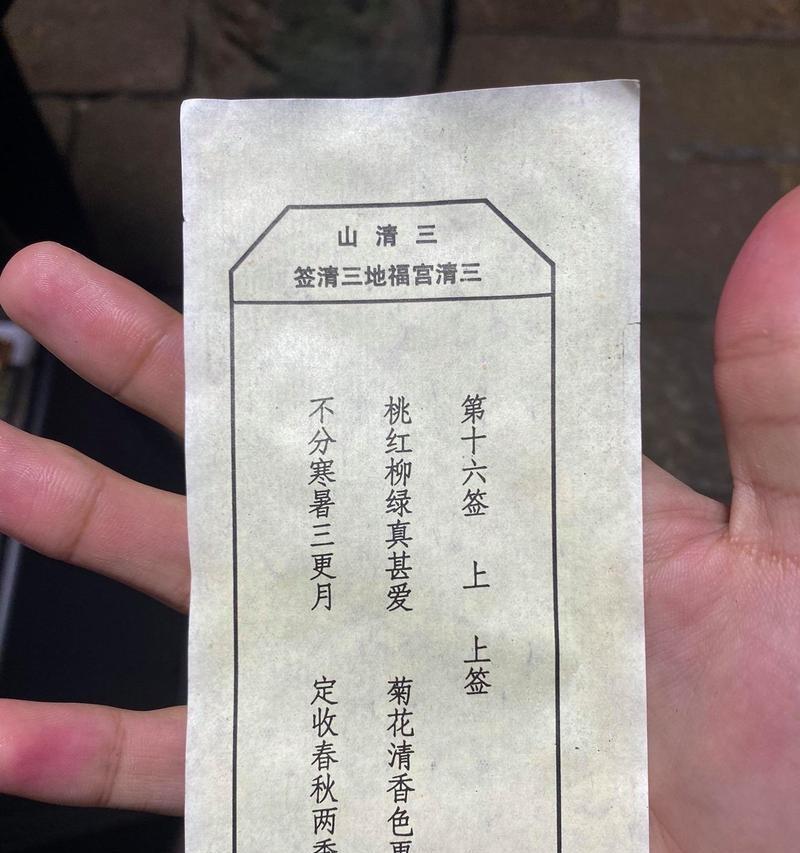 三清山
三清宫福地三清签
第十六签 上 上签
桃红柳绿真甚爱 菊花清香色更
不分寒暑三更月 定收春秋两季